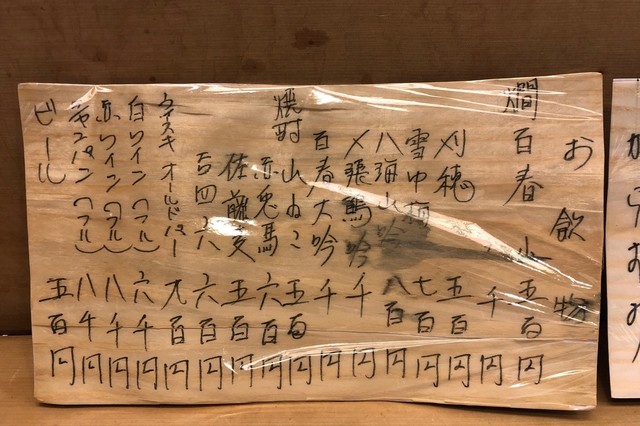 お飲物
燗 百春 小 五百円
千円
刈穂 五百円
雪中梅 七百円
八海山吟 八百円
〆張鶴吟 千円
百春大吟 千円
焼酎 山ねこ 五百円
赤兎馬 六百円
佐藤麦 五百円
吉四六 六百円
ウイスキ オールドパー 九百円
白ワイン(フル) 六千円
赤ワイン(フル) 八千円
シャンパン(フル) 八千円
ビール 五百円